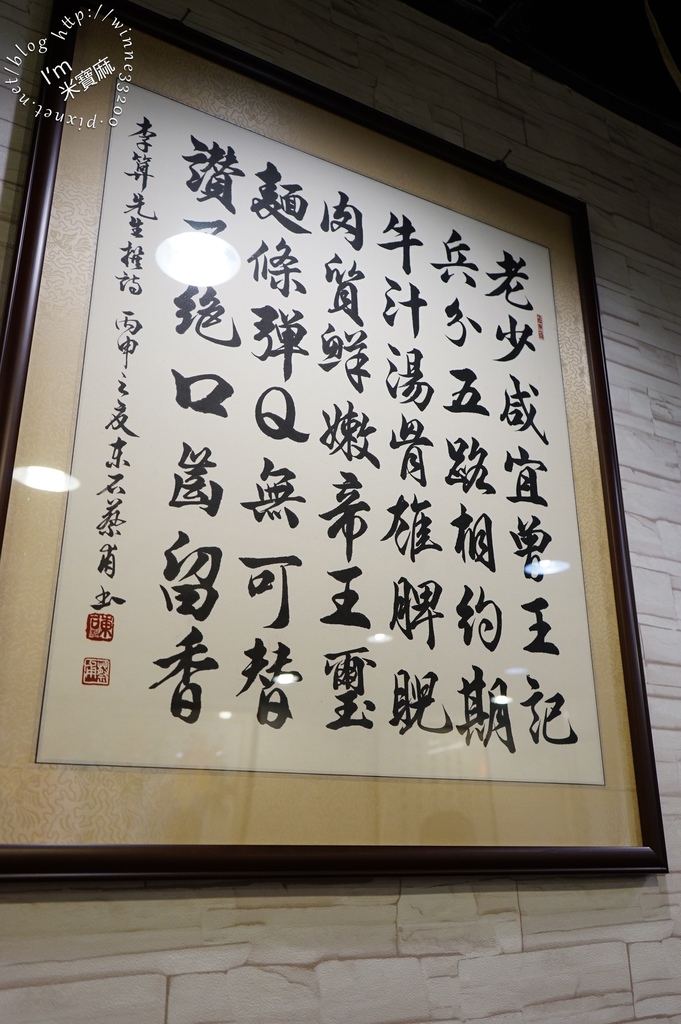 老少咸宜曾王記
兵分五路相約期
牛汁湯骨雄脾
肉質鮮嫩帝王璽
麵條彈Q無可替
讚不絕口齒留香
李算先生撰詩 丙申之夏東石蔡甫書
I'm
米寶麻
http://winne33200.pixnet.net/blog